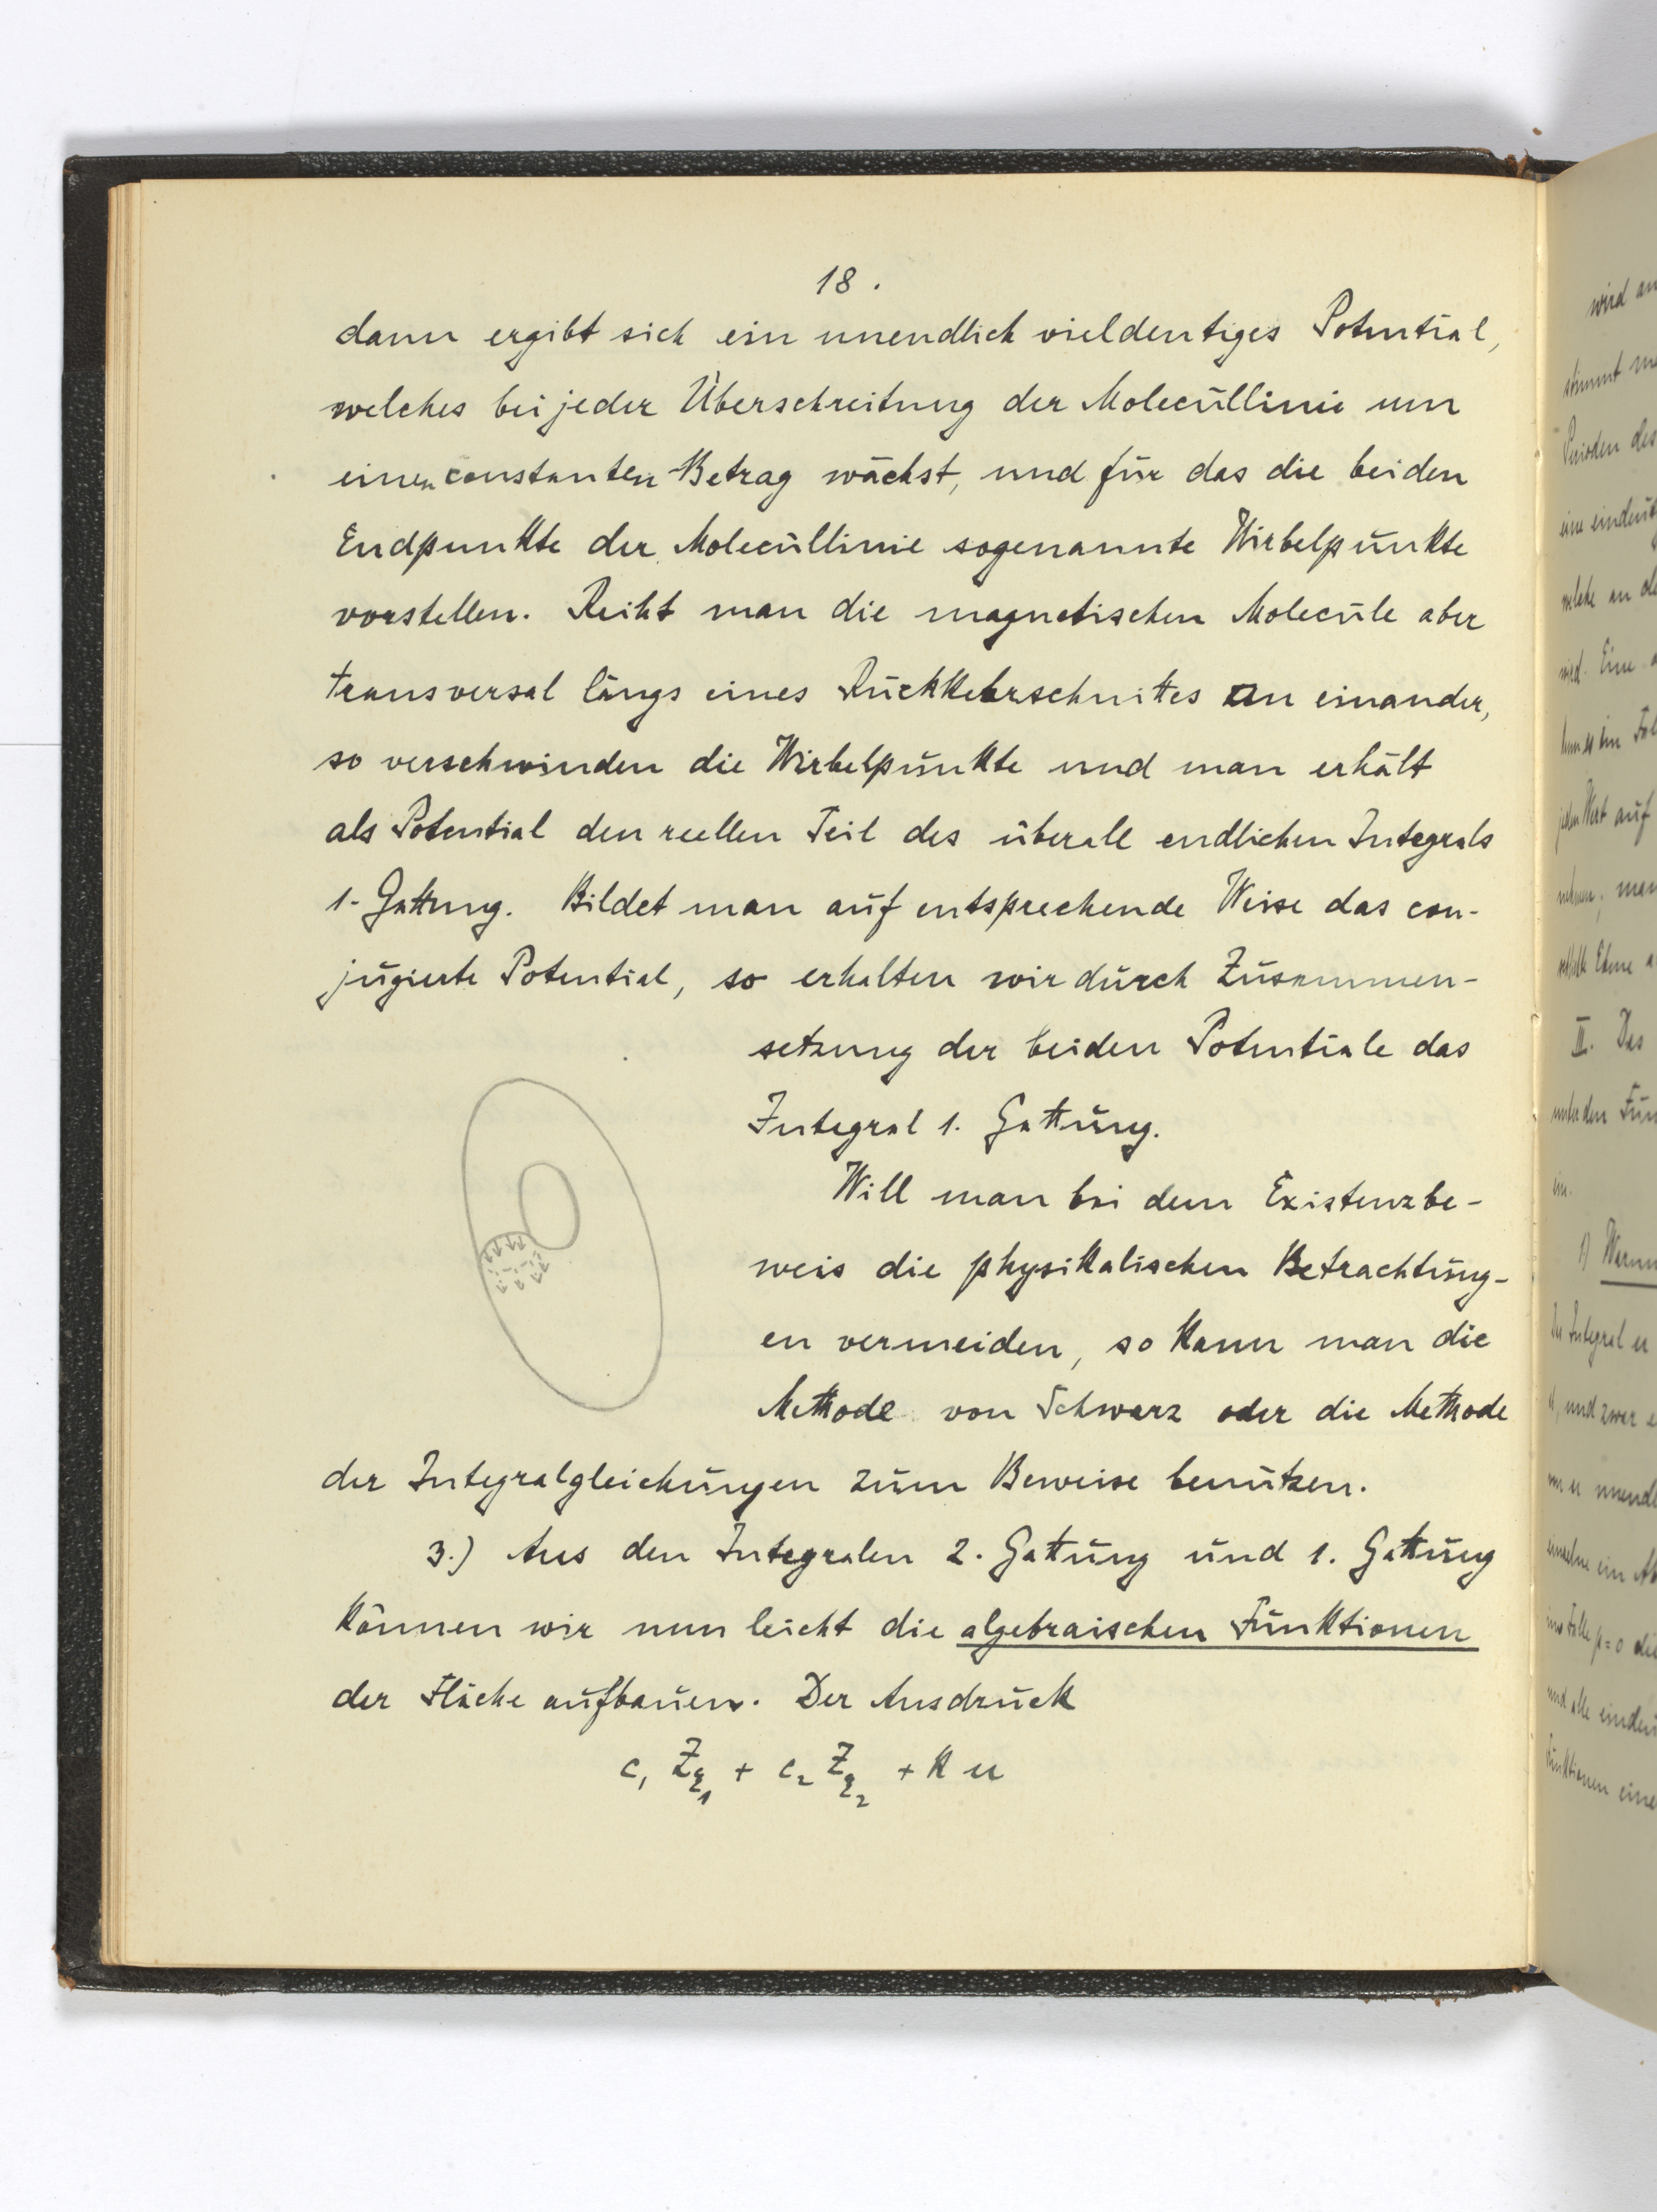 18.
dann ergibt sich ein unendlich vieldeutiges Potential,
welches bei jeder Überschreitung der Molecüllinie um
einen constanten Betrag wächst, und für das die beiden
Endpunkte der Molecüllinie sogenannte Wirbelpunkte
vorstellen. Reiht man die magnetischen Molecüle aber
transversal längs eines Rückkehrschnittes an einander,
so verschwinden die Wirbelpunkte und man erhält
als Potential den reellen Teil des überall endlichen Integrals
1. Gattung. Bildet man auf entsprechende Weise das con-
jugierte Potential, so erhalten wir durch Zusammen-
setzung der beiden Potentiale das
Integral 1. Gattung.
Will man bei dem Existenzbe-
weis die physikalischen Betrachtung-
en vermeiden, so kann man die
Methode von Schwarz oder die Methode
der Integralgleichungen zum Beweise benutzen.
3.) Aus den Integralen 2. Gattung und 1. Gattung
können wir nun leicht die algebraischen Funktionen
der Fläche aufbauen. Der Ausdruck
c₁ Z_ξ₁ + c₂ Z_ξ₂ + k u
wird an
stimmt
Perioden des
welche an
Eine
jeden Wert auf
II. Das
unter den
1) Warum
Integral
und zwar
p=0 die
und alle
Funktionen eine